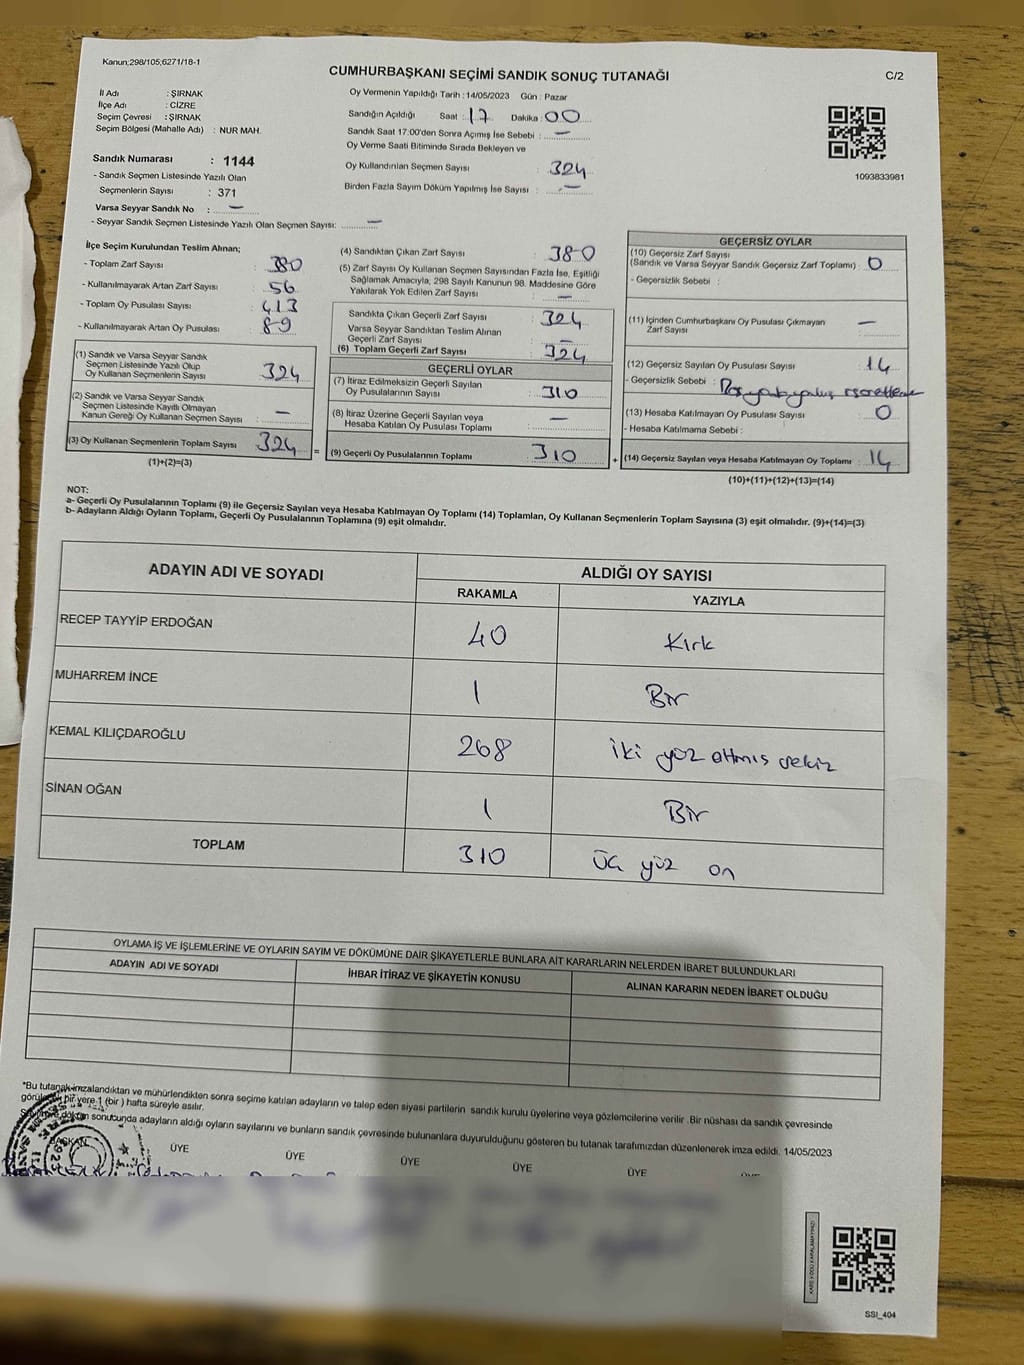 Kanun;298/105;6271/18-1
CUMHURBAŞKANI SEÇİMİ SANDIK SONUÇ TUTANAĞI
C/2
İl Adı : ŞIRNAK
İlçe Adı : CİZRE
Seçim Çevresi : ŞIRNAK
Seçim Bölgesi (Mahalle Adı) : NUR MAH.
Sandık Numarası : 1144
- Sandık Seçmen Listesinde Yazılı Olan
Seçmenlerin Sayısı : 371
Varsa Seyyar Sandık No : —
- Seyyar Sandık Seçmen Listesinde Yazılı Olan Seçmen Sayısı: —
Oy Vermenin Yapıldığı Tarih : 14/05/2023 Gün : Pazar
Sandığın Açıldığı Saat : 17 Dakika : 00
Sandık Saat 17:00'den Sonra Açımış İse Sebebi : —
Oy Verme Saati Bitiminde Sırada Bekleyen ve
Oy Kullandırılan Seçmen Sayısı : 324
Birden Fazla Sayım Döküm Yapılmış İse Sayısı : —
1093833981
İlçe Seçim Kurulundan Teslim Alınan;
- Toplam Zarf Sayısı : 380
- Kullanılmayarak Artan Zarf Sayısı : 56
- Toplam Oy Pusulası Sayısı : 413
- Kullanılmayarak Artan Oy Pusulası : 89
(1) Sandık ve Varsa Seyyar Sandık
Seçmen Listesinde Yazılı Olup
Oy Kullanan Seçmenlerin Sayısı : 324
(2) Sandık ve Varsa Seyyar Sandık
Seçmen Listesinde Kayıtlı Olmayan
Kanun Gereği Oy Kullanan Seçmen Sayısı : —
(3) Oy Kullanan Seçmenlerin Toplam Sayısı 324 =
(1)+(2)=(3)
(4) Sandıktan Çıkan Zarf Sayısı : 380
(5) Zarf Sayısı Oy Kullanan Seçmen Sayısından Fazla İse, Eşitliği
Sağlamak Amacıyla, 298 Sayılı Kanunun 98. Maddesine Göre
Yakılarak Yok Edilen Zarf Sayısı : —
Sandıkta Çıkan Geçerli Zarf Sayısı : 324
Varsa Seyyar Sandıktan Teslim Alınan
Geçerli Zarf Sayısı : —
(6) Toplam Geçerli Zarf Sayısı : 324
GEÇERLİ OYLAR
(7) İtiraz Edilmeksizin Geçerli Sayılan
Oy Pusulalarının Sayısı : 310
(8) İtiraz Üzerine Geçerli Sayılan veya
Hesaba Katılan Oy Pusulası Toplamı : —
(9) Geçerli Oy Pusulalarının Toplamı : 310 +
GEÇERSİZ OYLAR
(10) Geçersiz Zarf Sayısı
(Sandık ve Varsa Seyyar Sandık Geçersiz Zarf Toplamı) : 0
- Geçersizlik Sebebi :
(11) İçinden Cumhurbaşkanı Oy Pusulası Çıkmayan
Zarf Sayısı : —
(12) Geçersiz Sayılan Oy Pusulası Sayısı : 14
- Geçersizlik Sebebi :
(13) Hesaba Katılmayan Oy Pusulası Sayısı : 0
- Hesaba Katılmama Sebebi :
(14) Geçersiz Sayılan veya Hesaba Katılmayan Oy Toplamı : 14
(10)+(11)+(12)+(13)=(14)
NOT:
a- Geçerli Oy Pusulalarının Toplamı (9) ile Geçersiz Sayılan veya Hesaba Katılmayan Oy Toplamı (14) Toplamları, Oy Kullanan Seçmenlerin Toplam Sayısına (3) eşit olmalıdır. (9)+(14)=(3)
b- Adayların Aldığı Oyların Toplamı, Geçerli Oy Pusulalarının Toplamına (9) eşit olmalıdır.
ADAYIN ADI VE SOYADI
ALDIĞI OY SAYISI
RAKAMLA YAZIYLA
RECEP TAYYİP ERDOĞAN 40 Kırk
MUHARREM İNCE 1 Bir
KEMAL KILIÇDAROĞLU 268 iki yüz altmış sekiz
SİNAN OĞAN 1 Bir
TOPLAM 310 üç yüz on
OYLAMA İŞ VE İŞLEMLERİNE VE OYLARIN SAYIM VE DÖKÜMÜNE DAİR ŞİKAYETLERLE BUNLARA AİT KARARLARIN NELERDEN İBARET BULUNDUKLARI
ADAYIN ADI VE SOYADI İHBAR İTİRAZ VE ŞİKAYETİN KONUSU ALINAN KARARIN NEDEN İBARET OLDUĞU
*Bu tutanak imzalandıktan ve mühürlendikten sonra seçime katılan adayların ve talep eden siyasi partilerin sandık kurulu üyelerine veya gözlemcilerine verilir. Bir nüshası da sandık çevresinde
görülecek bir yere 1 (bir) hafta süreyle asılır.
Sayım ve döküm sonucunda adayların aldığı oyların sayılarını ve bunların sandık çevresinde bulunanlara duyurulduğunu gösteren bu tutanak tarafımızdan düzenlenerek imza edildi. 14/05/2023
BAŞKAN ÜYE ÜYE ÜYE ÜYE ÜYE
KARE KODU KAPALAMAYINIZ!
SSI_404